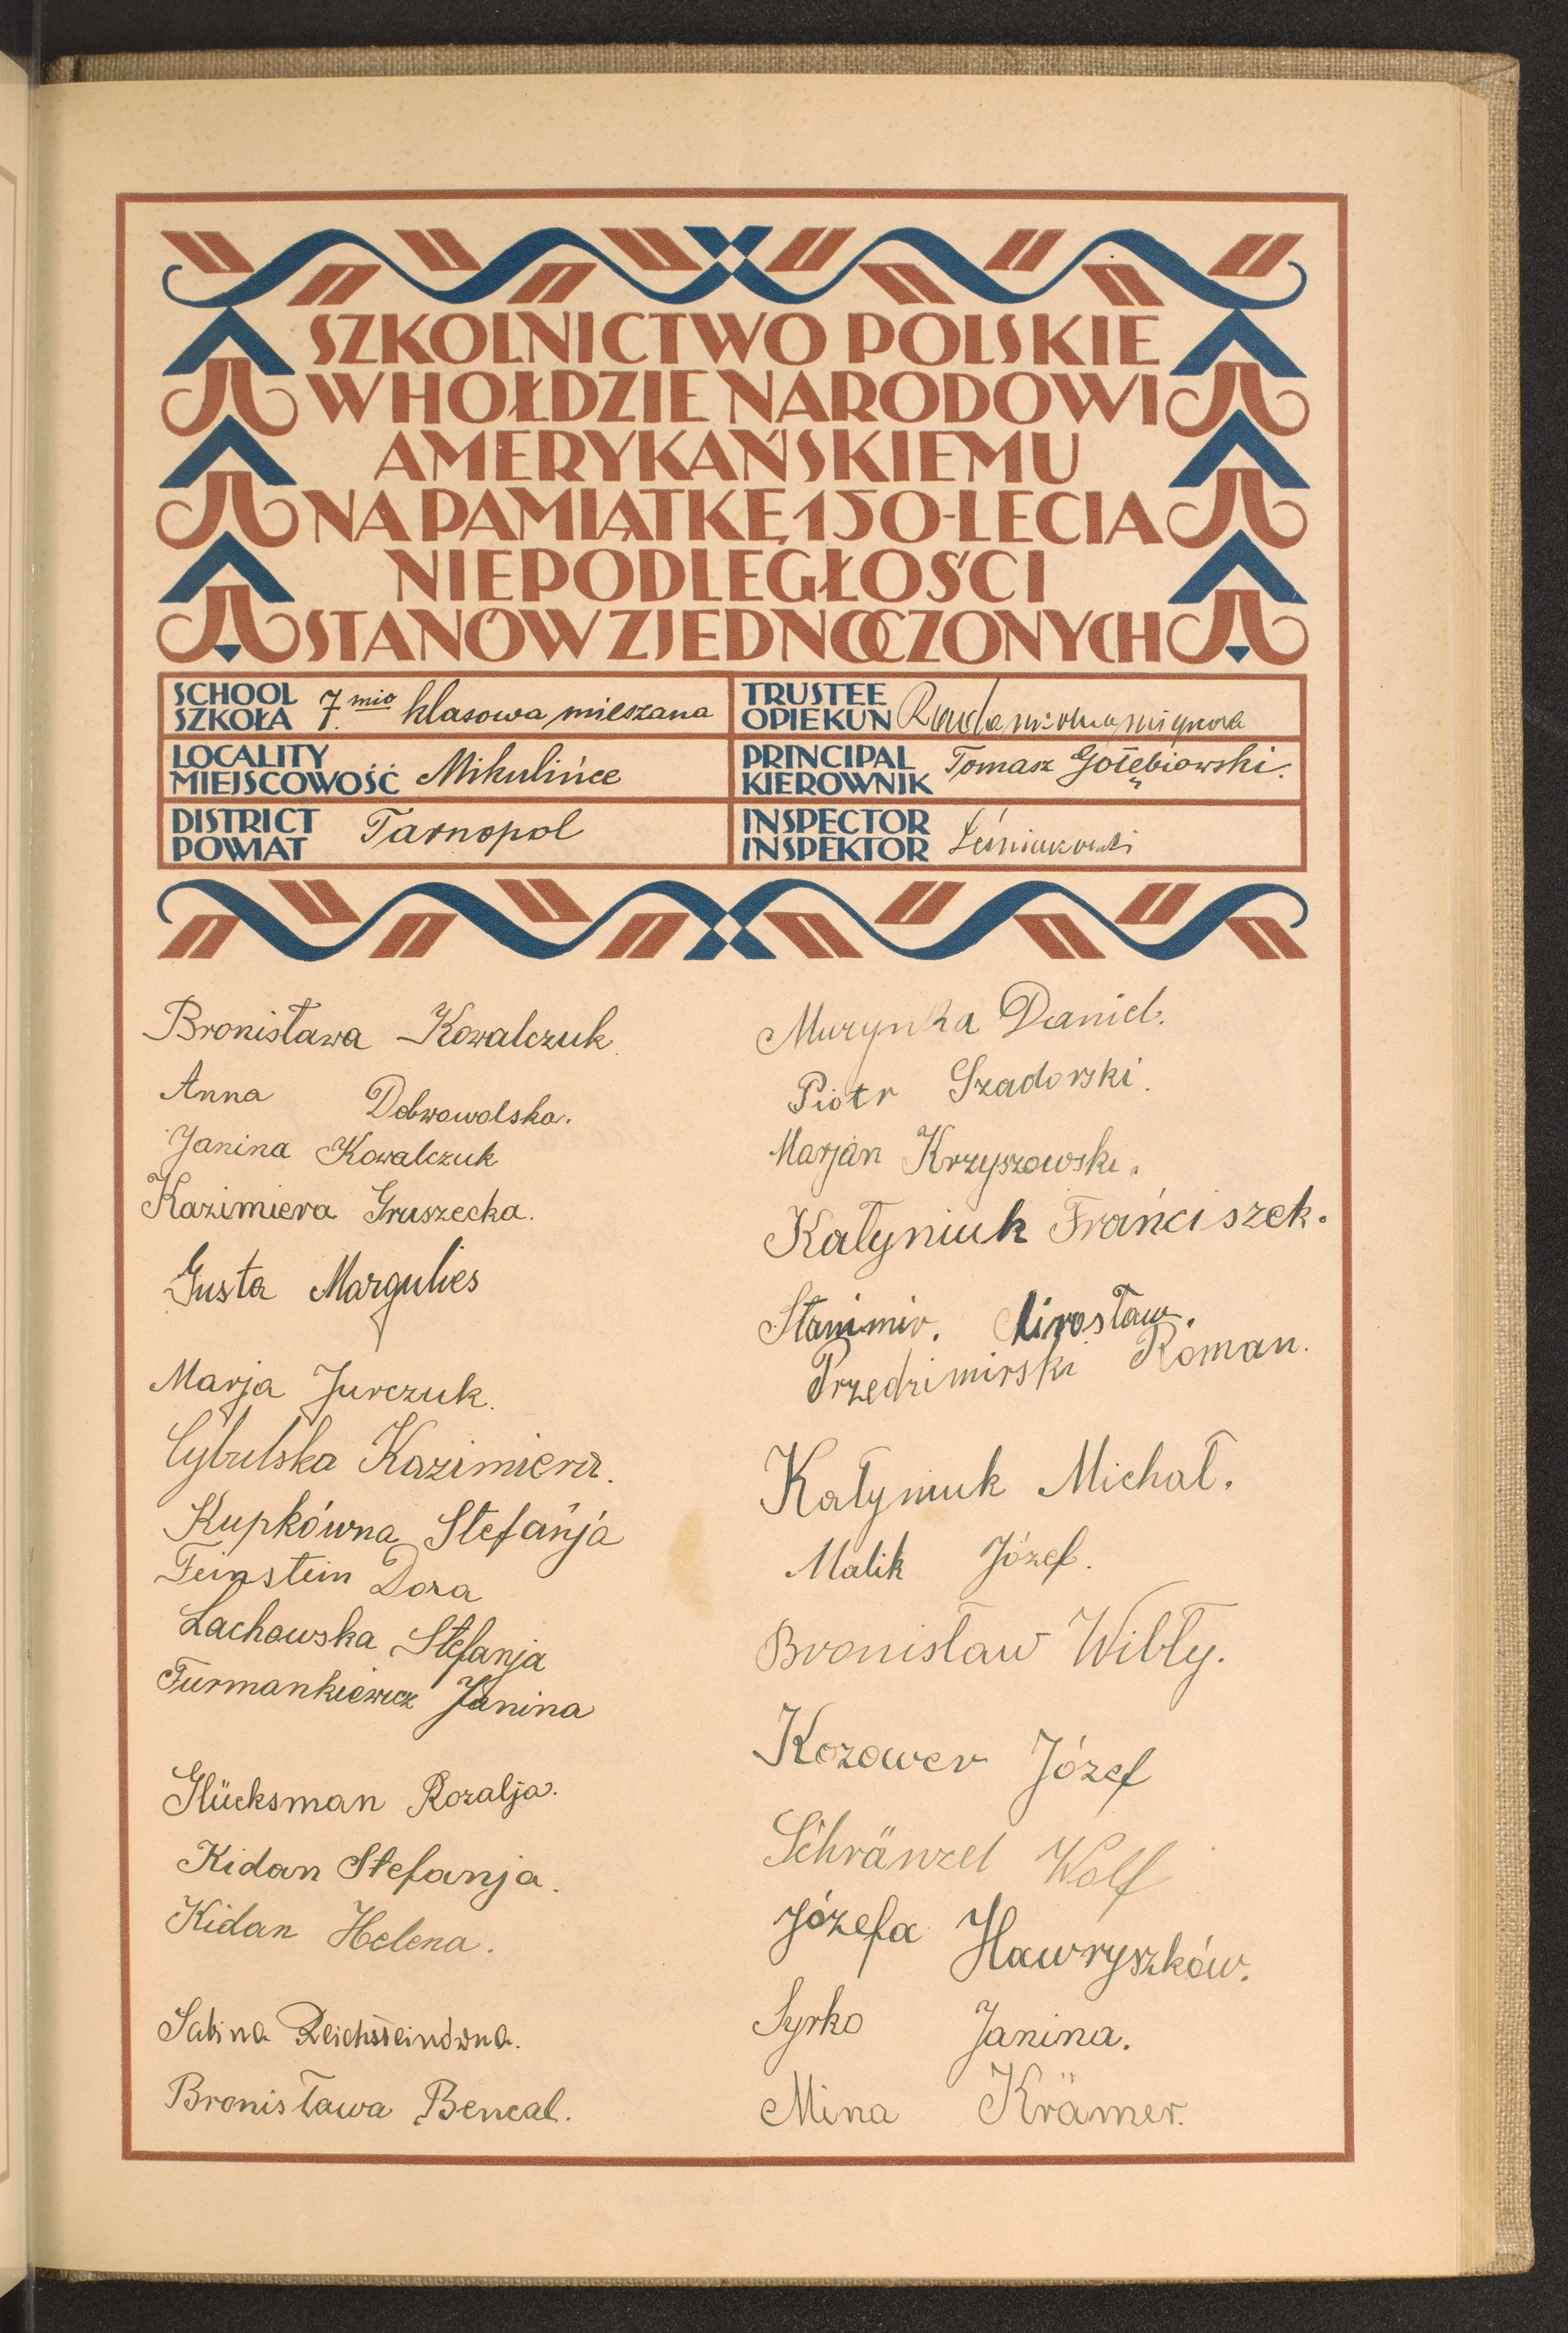 SZKOLNICTWO POLSKIE
W HOŁDZIE NARODOWI
AMERYKAŃSKIEMU
NA PAMIĄTKĘ 150-LECIA
NIEPODLEGŁOŚCI
STANÓW ZJEDNOCZONYCH
SCHOOL
SZKOŁA 7.mio klasowa mieszana
TRUSTEE
OPIEKUN Rada
LOCALITY
MIEJSCOWOŚĆ Mikulińce
PRINCIPAL
KIEROWNIK Tomasz Gołębiowski.
DISTRICT
POWIAT Tarnopol
INSPECTOR
INSPEKTOR
Bronisława Kowalczuk.
Anna Dobrowolska.
Janina Kowalczuk
Kazimiera Gruszecka.
Gusta Margulies
Marja Jurczuk.
Cybulska Kazimiera.
Kupkówna Stefańja
Feinstein Dora
Lachowska Stefanja
Furmankiewicz Janina
Glücksman Rozalja.
Kidan Stefanja.
Kidan Helena.
Sabina Reichsteinówna.
Bronisława Bencal.
Murynka Daniel.
Piotr Szadorski.
Marjan Krzyszowski.
Kałyniuk Frańciszek.
Stanimir. Mirosław.
Przedzimirski Roman.
Kałyniuk Michał.
Malik Józef.
Bronisław Wibły.
Kozower Józef
Schränzel Wolf
Józefa Hawryszków.
Syrko Janina.
Mina Krämer.